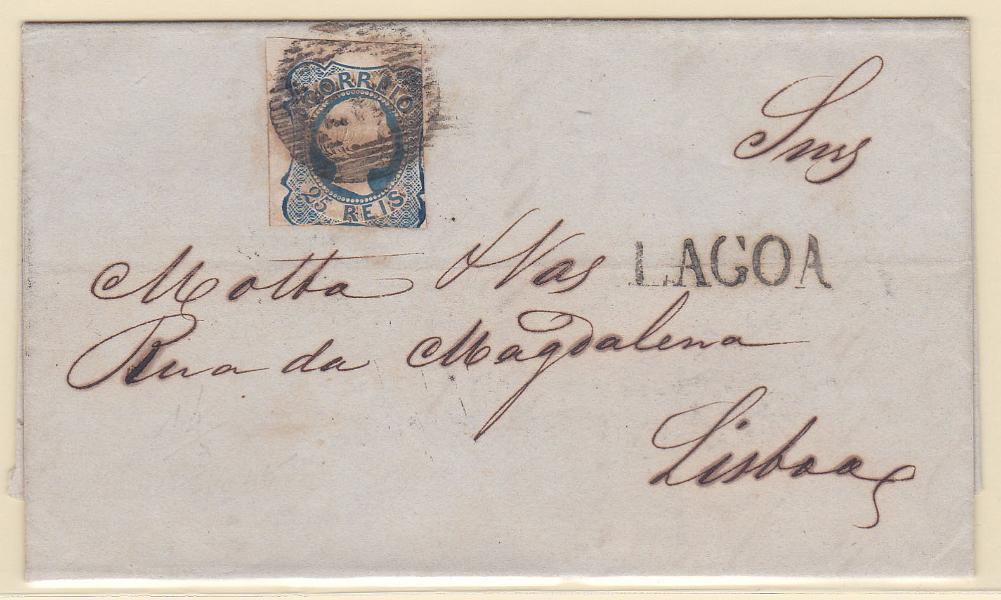 CORREIO
25 REIS
Snrs
LAGOA
Motta & Vas
Rua da Magdalena
Lisboa